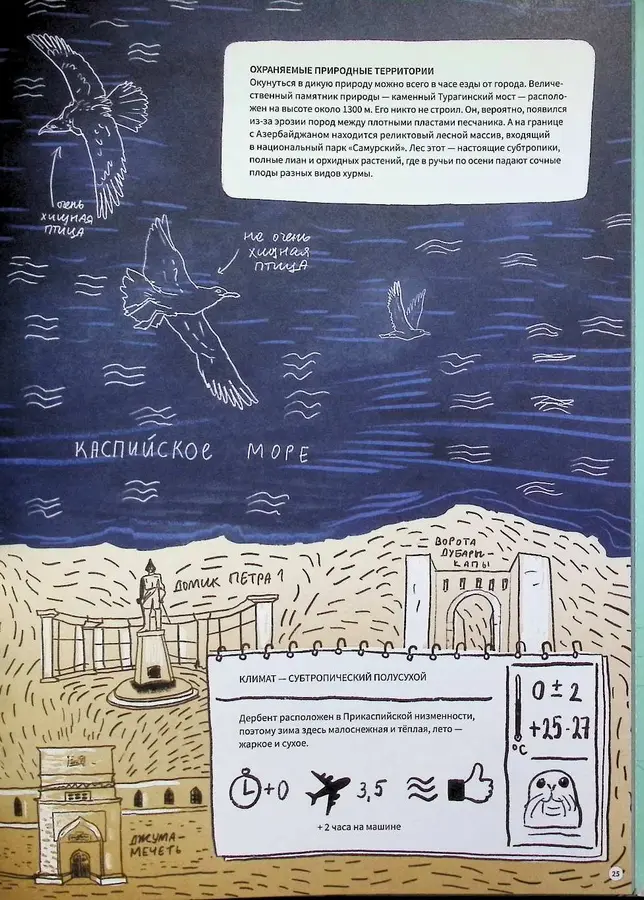 ОХРАНЯЕМЫЕ ПРИРОДНЫЕ ТЕРРИТОРИИ
Окунуться в дикую природу можно всего в часе езды от города. Величе-
ственный памятник природы — каменный Турагинский мост — располо-
жен на высоте около 1300 м. Его никто не строил. Он, вероятно, появился
из-за эрозии пород между плотными пластами песчаника. А на границе
с Азербайджаном находится реликтовый лесной массив, входящий
в национальный парк «Самурский». Лес этот — настоящие субтропики,
полные лиан и орхидных растений, где в ручьи по осени падают сочные
плоды разных видов хурмы.
очень
хищная
птица
не очень
хищная
птица
КАСПИЙСКОЕ МОРЕ
ВОРОТА
ДУБАРЫ-
КАПЫ
ДОМИК ПЕТРА 1
КЛИМАТ — СУБТРОПИЧЕСКИЙ ПОЛУСУХОЙ
Дербент расположен в Прикаспийской низменности,
поэтому зима здесь малоснежная и тёплая, лето —
жаркое и сухое.
+0
3,5
+ 2 часа на машине
0 ± 2
+25-27
°C
ДЖУМА-
МЕЧЕТЬ
25